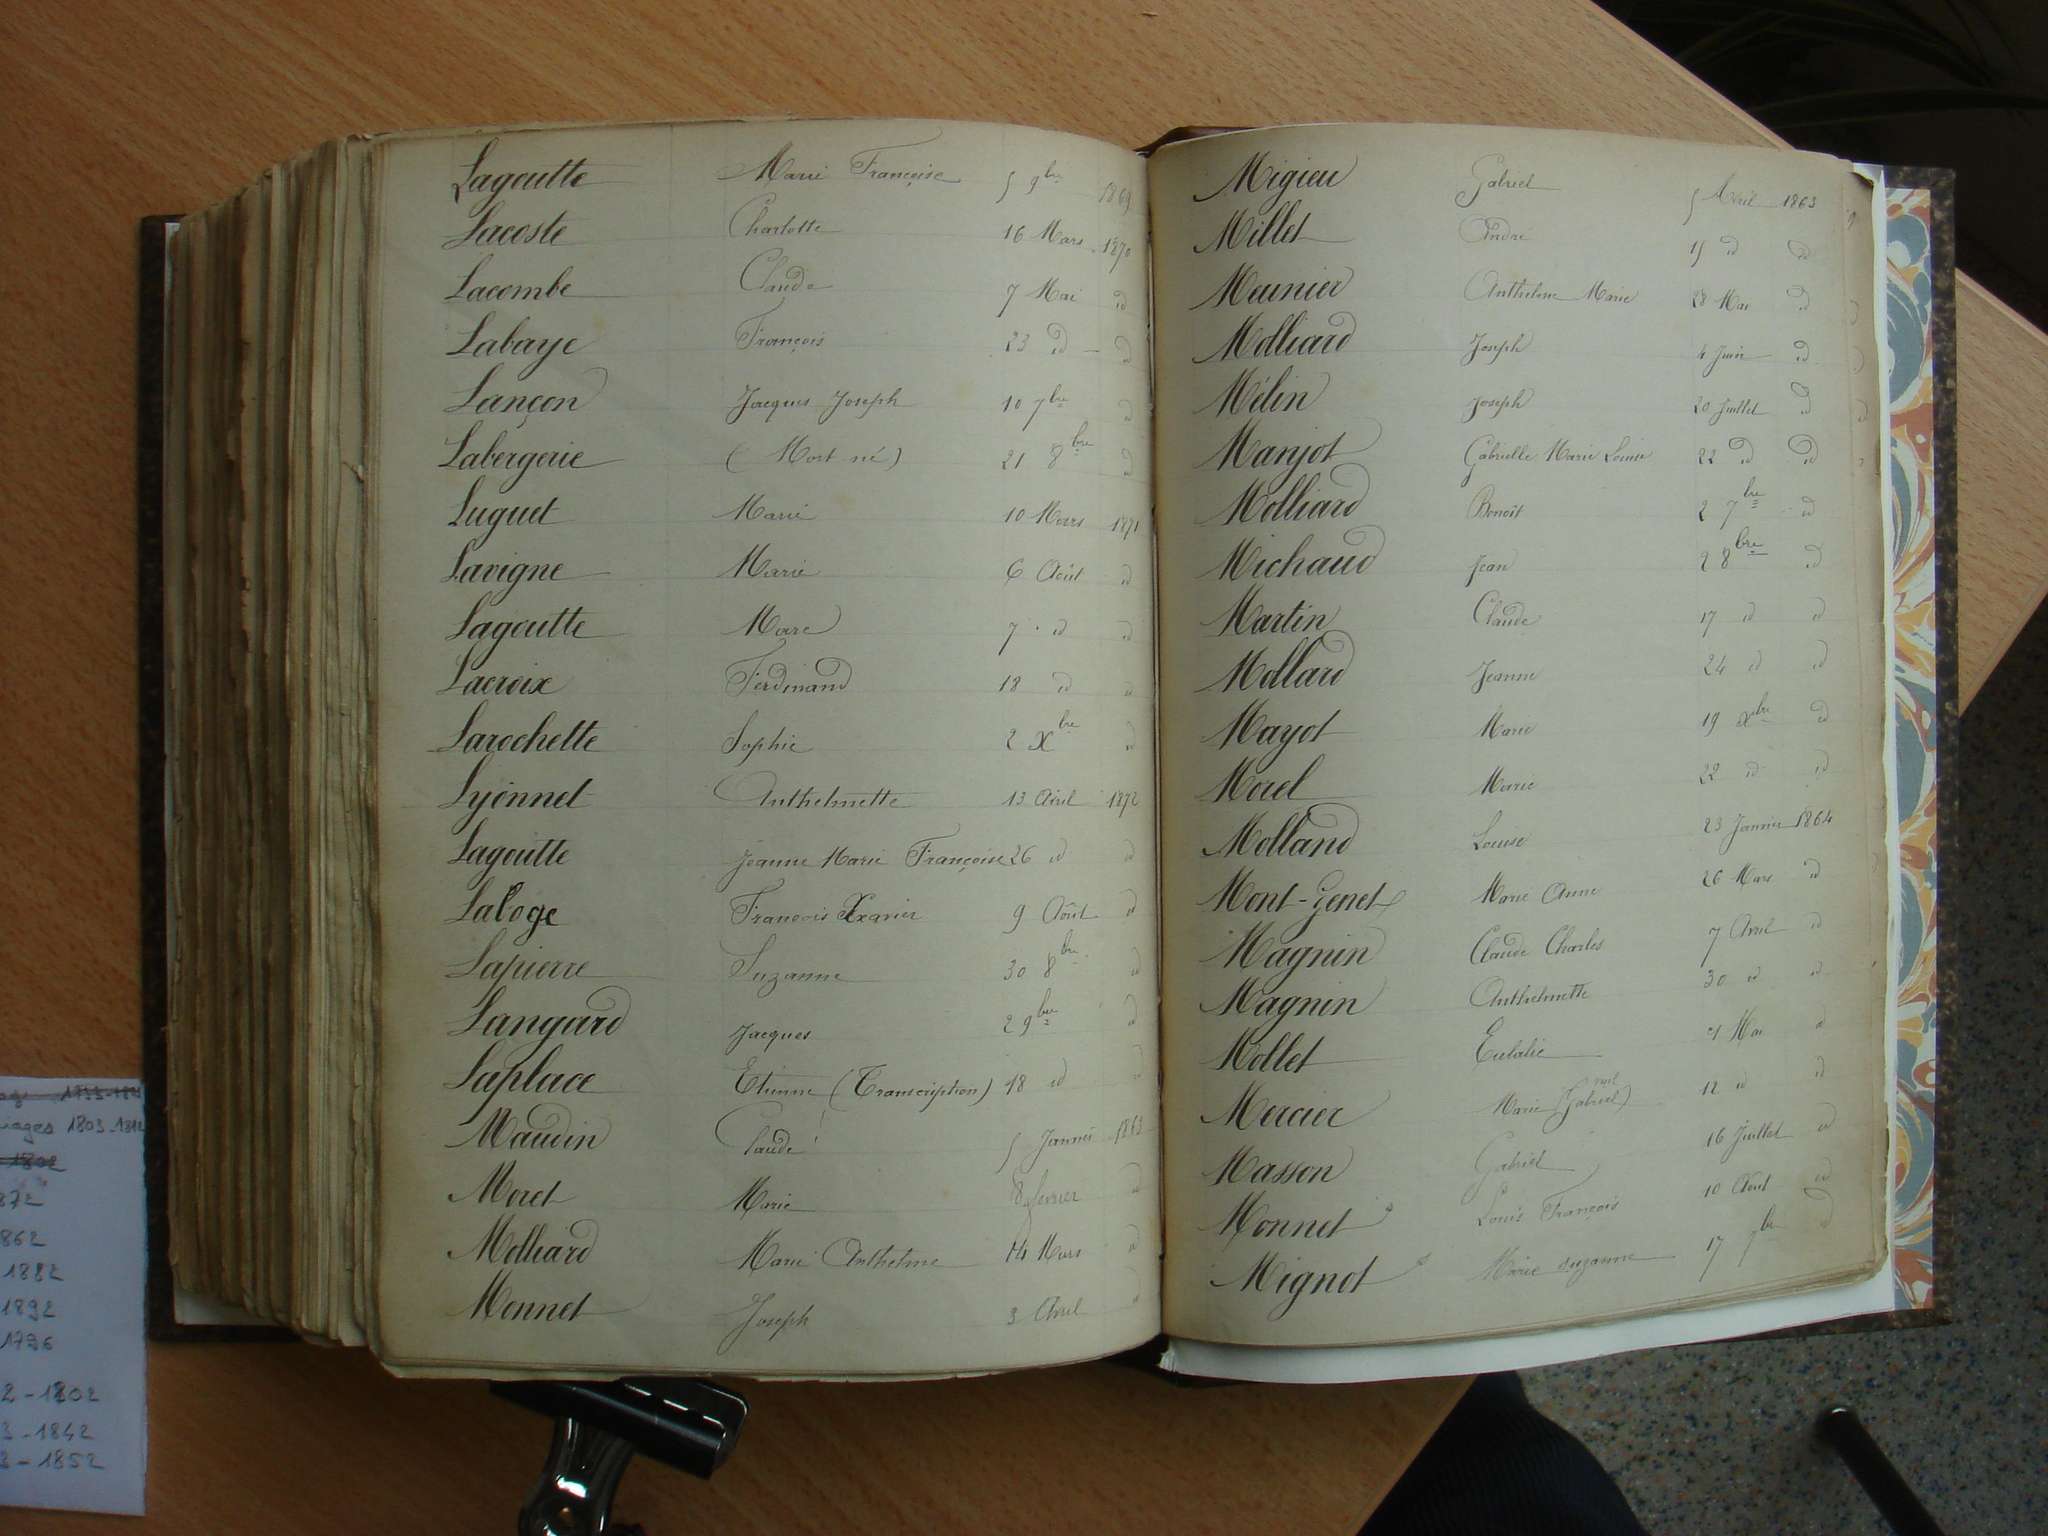 Lagoutte Marie Françoise 5 9bre 1869
Lacoste Charlotte 16 Mars 1870
Lacombe Claude 7 Mai id
Labaye François 23 id id
Lançon Jacques Joseph 10 7bre id
Labergerie (Mort né) 21 8bre id
Luguet Marie 10 Mars 1871
Lavigne Marie 6 Août id
Lagoutte Marc 7 id id
Lacroix Ferdinand 18 id id
Larochette Sophie 2 Xbre id
Lyonnet Anthelmette 13 Avril 1872
Lagoutte Jeanne Marie Françoise 26 id id
Laloge François Xavier 9 Août id
Lapierre Suzanne 30 8bre id
Langard Jacques 2 9bre id
Laplace Etienne (Transcription) 18 id
Maudin Claude 5 Janvier 1863
Moret Marie 8 février id
Molliard Marie Anthelme 14 Mars id
Monnet Joseph 3 Avril id
Migieu Gabriel 5 Avril 1863
Millet André 15 id id
Meunier Anthelme Marie 28 Mai id
Molliard Joseph 4 Juin id
Mélin Joseph 20 Juillet id
Manjot Gabrielle Marie Louise 22 id id
Molliard Benoît 2 7bre id
Michaud Jean 2 8bre id
Martin Claude 17 id id
Mollard Jeanne 24 id id
Mayot Marie 19 Xbre id
Morel Marie 22 id id
Molland Louise 23 Janvier 1864
Mont-Genet Marie Anne 26 Mars id
Magnin Claude Charles 7 Avril id
Magnin Anthelmette 30 id id
Mollet Eulalie Mai id
Mercier Marie (Gabriel) 12 id id
Masson Gabriel 16 Juillet id
Monnet Louis François 10 Août id
Mignot Marie Suzanne 17 7bre id
1803-1812
1802
872
862
1882
1892
1796
2-1802
3-1842
3-1852